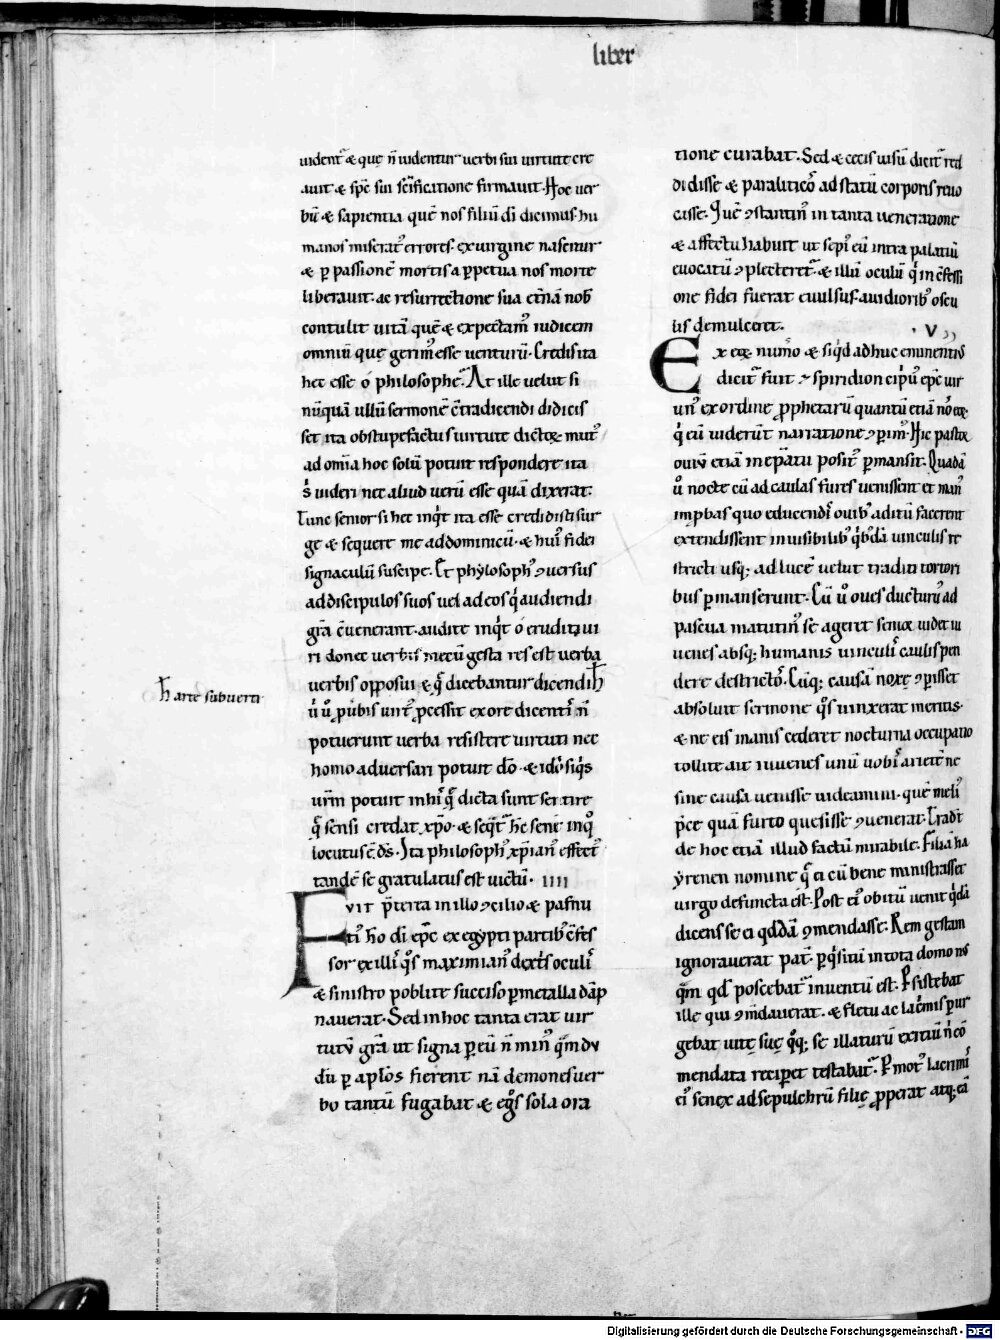 liber
uident᷑ & quę n̄ uidentur uerbi sui uirtute cre
auit & sp̄c sui sc̄ificatione firmauit. Hoc uer
bū & sapientia quē nos filiū dī dicimus. hu
manos miserat᷒ errores. ex uirgine nascitur
& ꝑ passionē mortis a ꝑpetua nos morte
liberauit. ac resurrectione sua et̄nā nob̄
contulit uitā quē & expectam᷒ iudicem
omniū quę gerim᷒ esse venturū. Credis ita
hec esse o philosophe. At ille velut si
nūquā ullū sermonē c̄tradicendi didicis
set ita obstupefactus uirtute dictoꝝ mut᷒
ad om̄ia hoc solū potuit respondere ita
s᷒ uideri nec aliud uerū esse quā dixerat.
Tunc senior si hec inqͥt ita esse credidisti sur
ge & sequere me ad dominicū. & hui᷒ fidei
signaculū suscipe. Et phylosoph᷒ ꝯuersus
ad discipulos suos uel ad eos qͥ audiendi
gr̄a c̄uenerant. audite inqͥt ó eruditi ui
ri donec uerbis mecū gesta res est uerba
uerbis opposui & q̄ dicebantur dicendi h̄
h̄ arte subuerti
ů ů ꝓ uerbis uirt᷒ ꝓcessit ex ore dicentis n̄
potuerunt uerba resistere uirtuti nec
homo aduersari potuit dō. & idō siqͥs
ur̄m potuit in hiis q̄ dicta sunt sentire
q̄ sensi credat xp̄o. & seqͣt᷑ h̄c senē in qͦ
locutus ē d̄s. Ita philosoph᷒ xp̄ian᷒ effect᷒
tandē se gratulatus est uictū. IIII
FVIT p̄terea in illo ꝯcilio & pafnu
ti᷒ hō dī ep̄c ex egypti partib᷒ c̄fes
sor ex illis qͦs maximian᷒ dextͥs oculis
& sinistro poblite succiso ꝑ metalla dāp
nauerat. Sed in hoc tanta erat uir
tutū gr̄a ut signa ꝑ eū n̄ min᷒ q̄m du
dū ꝑ aplōs fierent nā demones uer
bo tantū fugabat & egͦs sola ora
tione curabat. Sed & cecis uisū dicit᷑ red
didisse & paraliticos ad statū corporis reuo
casse. Quē ꝯstantin᷒ in tanta ueneratione
& affectu habuit ut sepi᷒ eū intra palatiū
euocatū ꝯplecteret᷑. & illū oculū qͥ in c̄fessi
one fidei fuerat euulsus. auidiorib᷒ oscu
lis demulceret. V
Ex eoꝝ num̄o & siqͥd adhuc eminentius
dicit᷑ fuit & spiridion cipri᷒ ep̄c uir
un᷒ ex ordine ꝓphetarū quantū etiā nos eoꝝ
qͥ eū uiderūt narratione ꝯperim᷒. Hic pastor
ouiū etiā in ep̄atu posit᷒ ꝑmansit. Quadā
ů nocte cū ad caulas fures uenissent et man᷒
imꝓbas quo educendis ouib᷒ aditū facerent
extendissent inuisibilib᷒ qͥb᷒dā uinculis re
stricti usq; ad lucē velut traditi tortori
bus ꝑmanserunt. Cū ů oues ducturus ad
pascua matutin᷒ se ageret senex uidet iu
uenes absq; humanis uinculis caulis pen
dere destrictos. Cūq; causā noxę ꝯperisset
absoluit sermone qͦs uinxerat meritis.
& ne eis inanis cederet nocturna occupatio
tollite ait iuuenes unū uobis arietē ne
sine causa uenisse uideamini. quē meli᷒
p̄ce quā furto quesisse ꝯuenerat. Tradt̄
de hoc etiā illud factū mirabile. Filiā ha
ẏrenen nomine q̄ ei cū bene ministrasset
uirgo defuncta est. Post ei᷒ obitū uenit qͥdā
dicens se ei qd̄dā ꝯmendasse. Rem gestam
ignorauerat pat᷑. ꝑqͥsitū in tota domo n̄s
q̄m qd̄ poscebat᷑ inuentū est. Ꝑsistebat
ille qui ꝯm̄dauerat. & fletu ac lacͥmis ꝑur
gebat uitę suę qͦq; se illaturū exitiū nͥ cō
mendata reciꝑet testabat᷑. Ꝑmot᷒ lacrimis
ei᷒ senex ad sepulchrū filię ꝓperat atq; eā